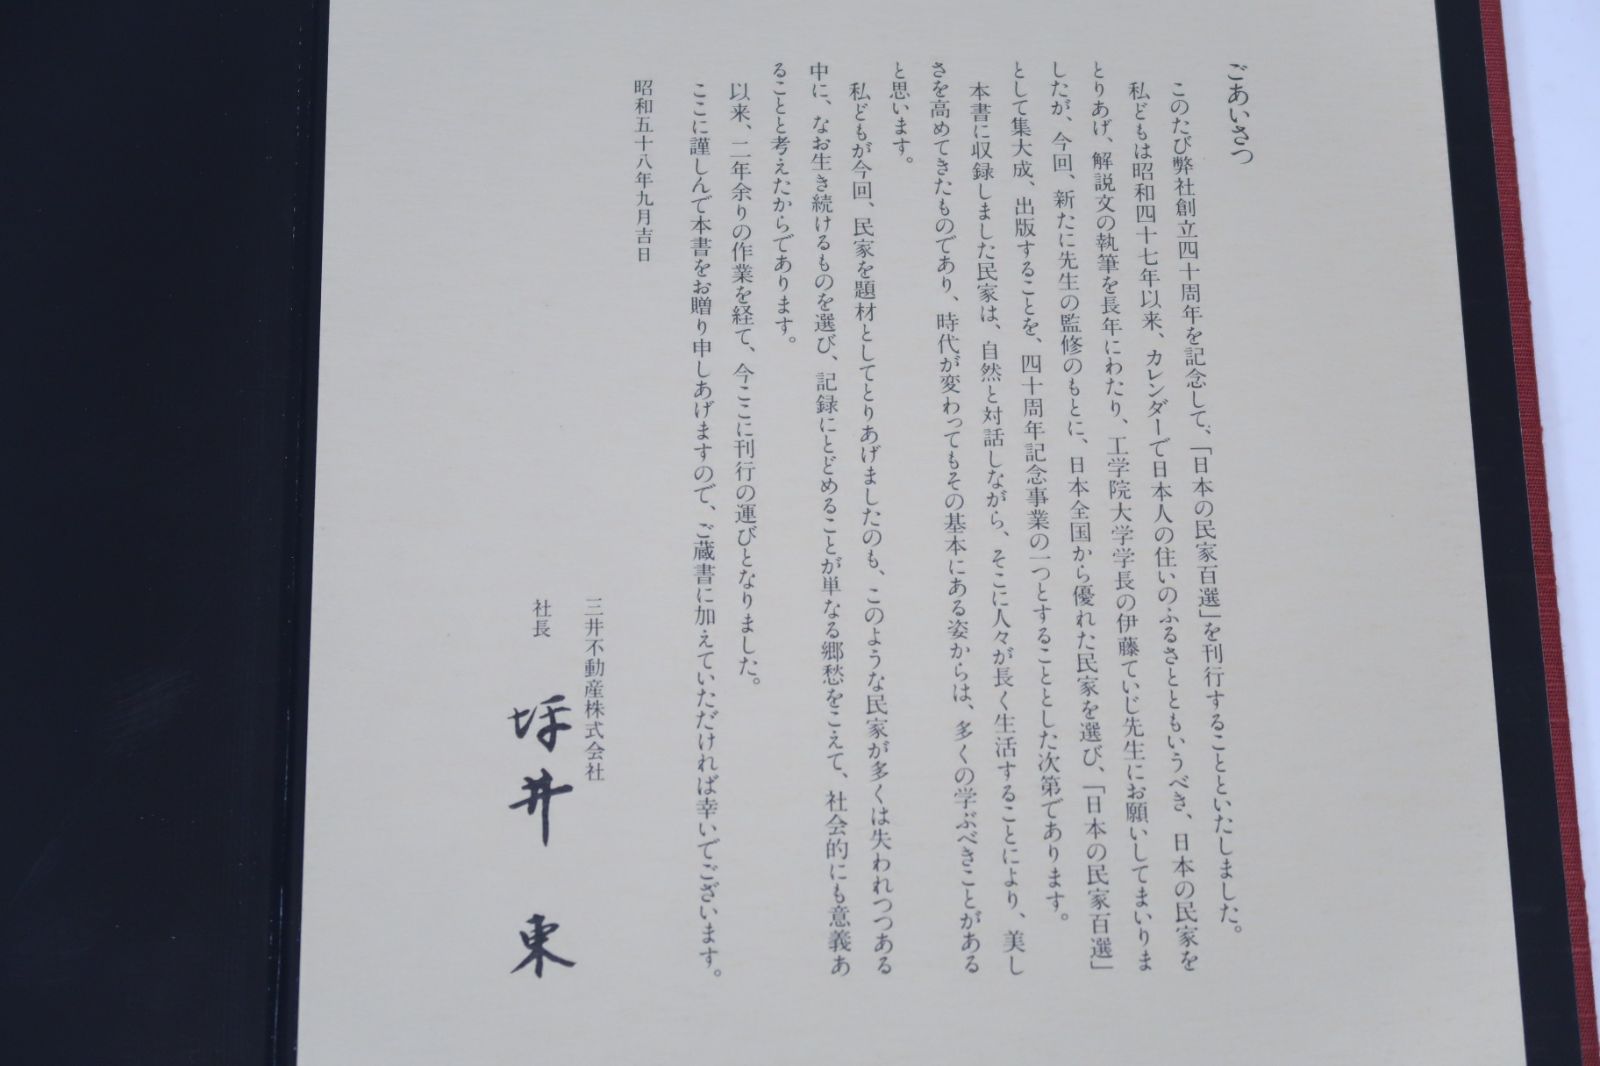 ごあいさつ
このたび弊社創立四十周年を記念して、「日本の民家百選」を刊行することといたしました。
私どもは昭和四十七年以来、カレンダーで日本人の住いのふるさとともいうべき、日本の民家を
とりあげ、解説文の執筆を長年にわたり、工学院大学学長の伊藤ていじ先生にお願いしてまいりま
したが、今回、新たに先生の監修のもとに、日本全国から優れた民家を選び、「日本の民家百選」
として集大成、出版することを、四十周年記念事業の一つとすることとした次第であります。
本書に収録しました民家は、自然と対話しながら、そこに人々が長く生活することにより、美し
さを高めてきたものであり、時代が変わってもその基本にある姿からは、多くの学ぶべきことがある
と思います。
私どもが今回、民家を題材としてとりあげましたのも、このような民家が多くは失われつつある
中に、なお生き続けるものを選び、記録にとどめることが単なる郷愁をこえて、社会的にも意義あ
ることと考えたからであります。
以来、二年余りの作業を経て、今ここに刊行の運びとなりました。
ここに謹しんで本書をお贈り申しあげますので、ご蔵書に加えていただければ幸いでございます。
昭和五十八年九月吉日
三井不動産株式会社
社長 坪井 東